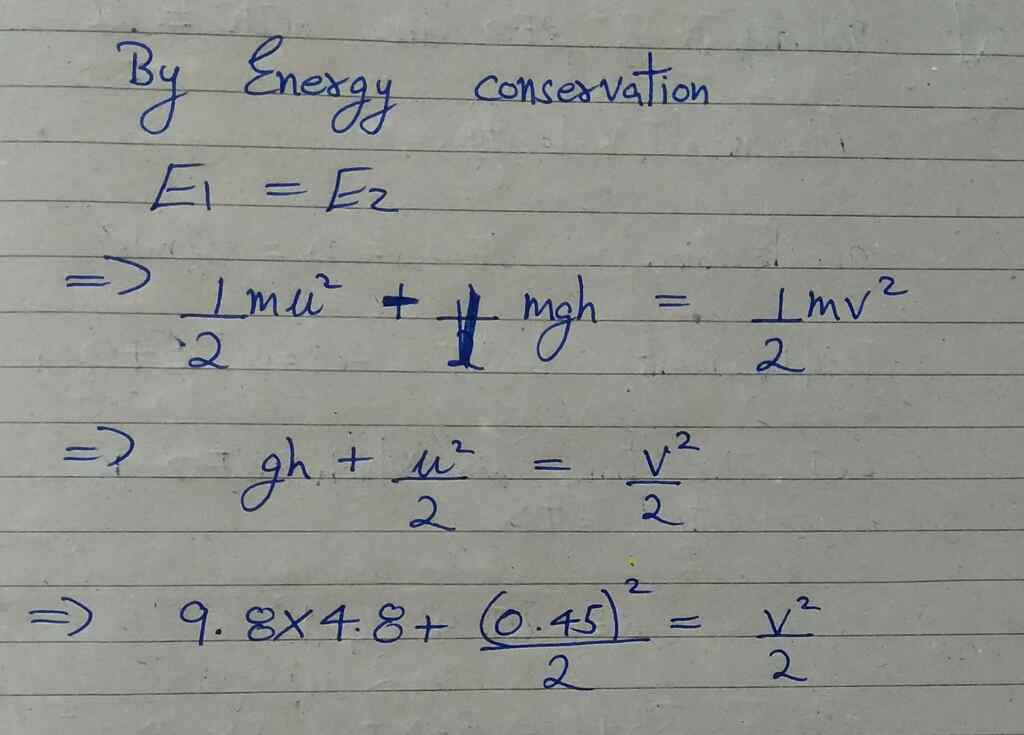 By Energy conservation
E1 = E2
=> 1/2 mu² + mgh = 1/2 mv²
=> gh + u²/2 = v²/2
=> 9.8×4.8+ (0.45)²/2 = v²/2